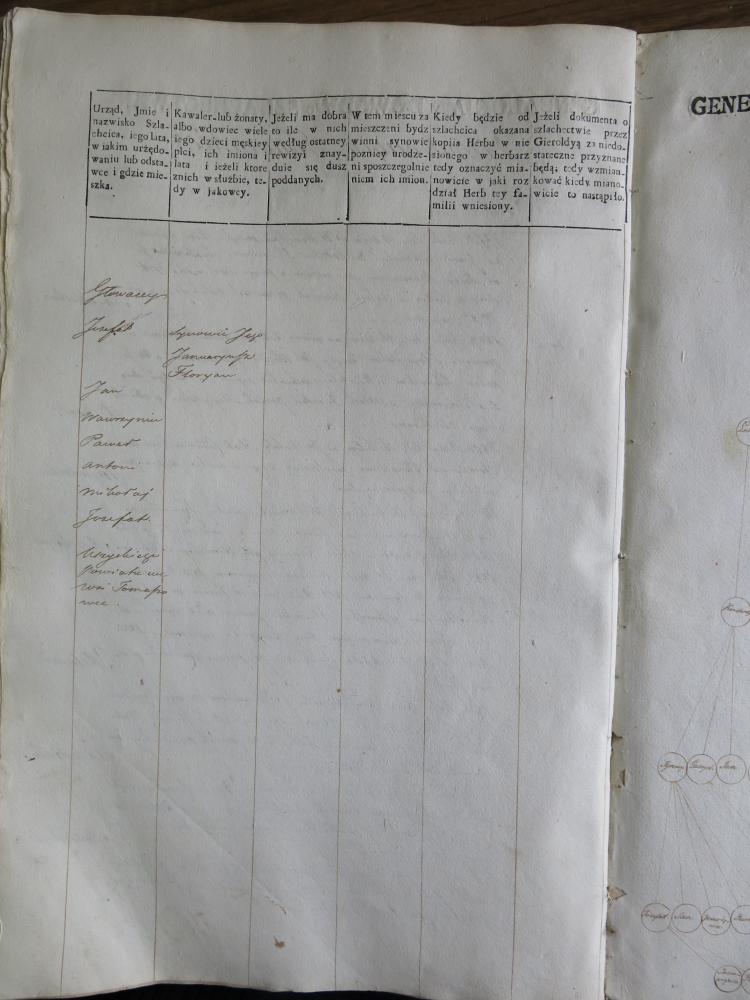 Urząd, Jmie i
nazwisko Szla-
chcica, iego lata,
w iakim urzędo-
waniu lub odsta-
wce i gdzie mie-
szka.
Kawaler lub żonaty,
albo wdowiec wiele
iego dzieci męskiey
płci, ich imiona i
lata i ieżeli ktore
znich w służbie, te-
dy w jakowey.
Jeżeli ma dobra
to ile w nich
według ostatney
rewizyi znay-
duie się dusz
poddanych.
W tem miescu za
mieszczeni bydz
winni synowie
pozniey urodze-
ni sposzczegolnie
niem ich imion.
Kiedy będzie od
szlachcica okazana
kopiia Herbu w nie
sionego w herbarz
tedy oznaczyć mia-
nowicie w jaki roz
dział Herb tey fa-
milii wniesiony.
Jeżeli dokumenta o
szlachectwie przez
Gieroldyą za niedo-
stateczne przyznane
będą; tedy wzmian-
kować kiedy miano-
wicie to nastąpiło.
Głowaccy
Jozefat
Synowie Jego
Januaryusz
Floryan
Jan
Wawrzyniec
Paweł
Antoni
Mikołaj
Jozefat.
Uszyckiego
Powiatu we
wsi Tomaszo
wce.
GENE
Jan
Jozefat
Jan